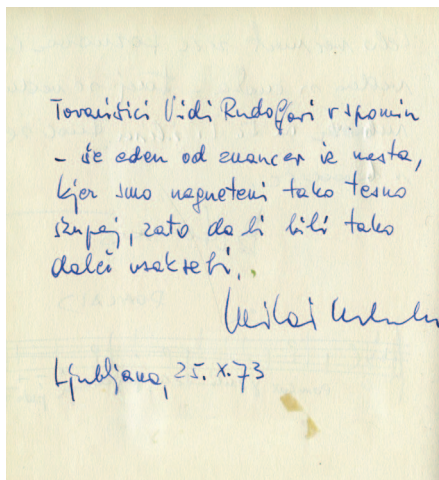 Tovarišici Vidi Rudolfovi v spomin
– še eden od znancev iz mesta,
kjer smo nagneteni tako tesno
skupaj, zato da bi bili tako
daleč vsaksebi.
Ljubljana, 25. X. 73